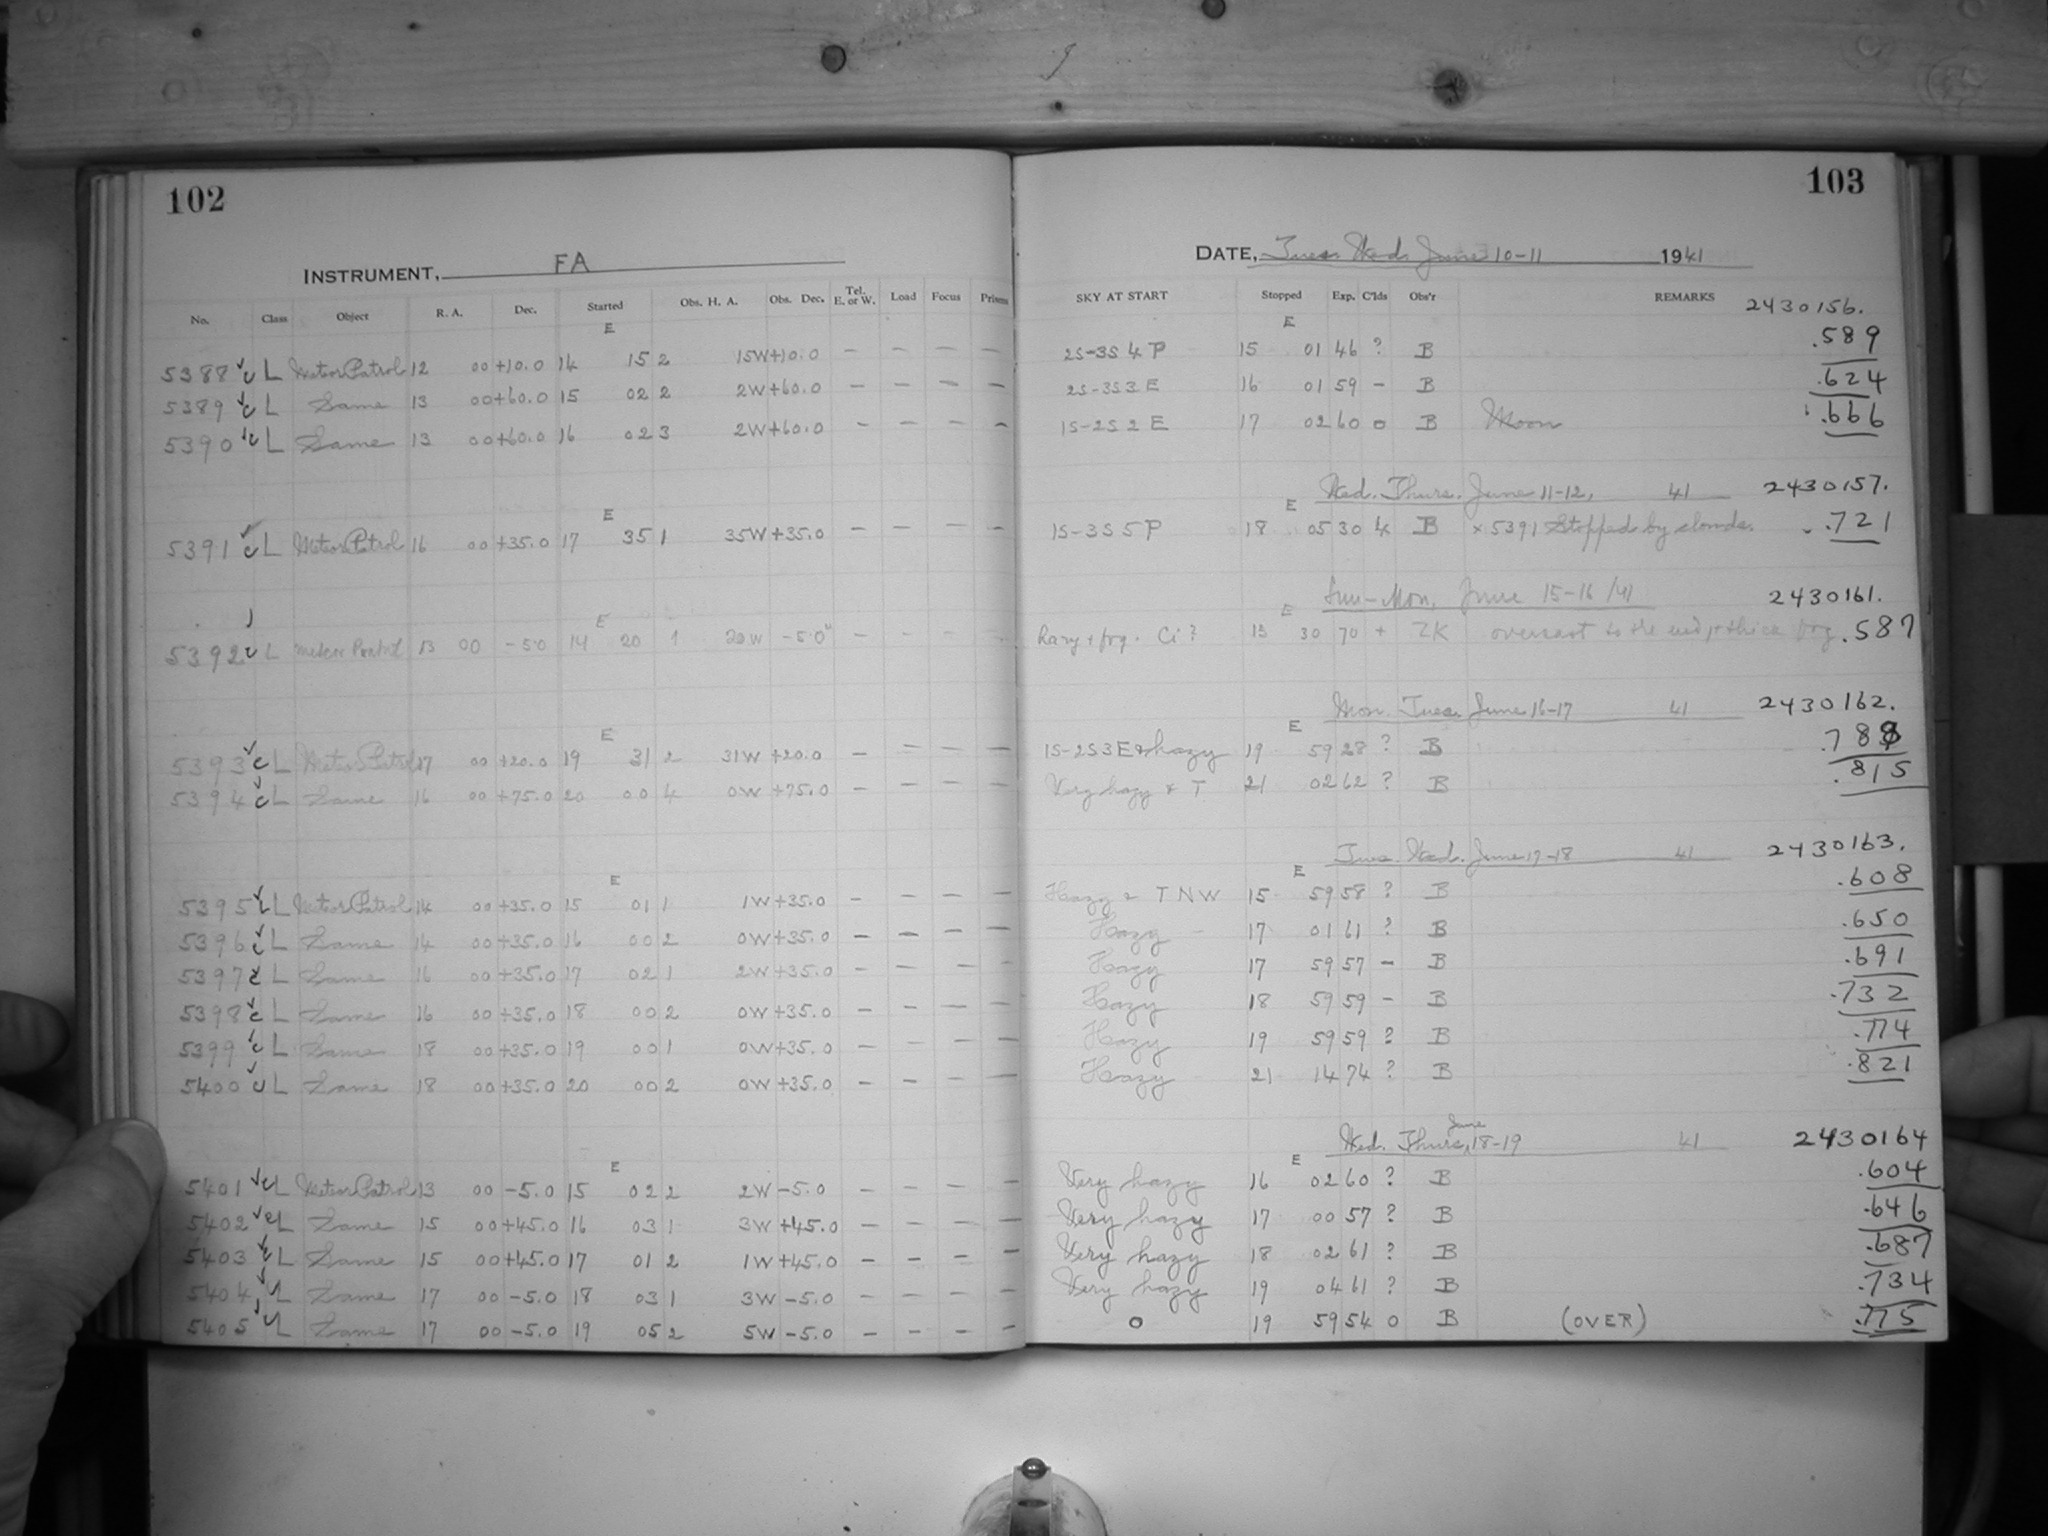 102
INSTRUMENT, FA
No. Class Object R. A. Dec. Started Obs. H. A. Obs. Dec. Tel. E. or W. Load Focus Prisms
E
5388 ✓c L Meteor Patrol 12 00 +10.0 14 15 2 15W +10.0 — — — —
5389 ✓c L Same 13 00 +60.0 15 02 2 2W +60.0 — — — —
5390 ✓c L Same 13 00 +60.0 16 02 3 2W +60.0 — — — —
E
5391 ✓c L Meteor Patrol 16 00 +35.0 17 35 1 35W +35.0 — — — —
E
5392 ✓c L Meteor Patrol 13 00 -5.0 14 20 1 20W -5.0 — — — —
E
5393 ✓c L Meteor Patrol 17 00 +20.0 19 31 2 31W +20.0 — — — —
5394 ✓c L Same 16 00 +75.0 20 00 4 0W +75.0 — — — —
E
5395 ✓c L Meteor Patrol 14 00 +35.0 15 01 1 1W +35.0 — — — —
5396 ✓c L Same 14 00 +35.0 16 00 2 0W +35.0 — — — —
5397 ✓c L Same 16 00 +35.0 17 02 1 2W +35.0 — — — —
5398 ✓c L Same 16 00 +35.0 18 00 2 0W +35.0 — — — —
5399 ✓c L Same 18 00 +35.0 19 00 1 0W +35.0 — — — —
5400 ✓c L Same 18 00 +35.0 20 00 2 0W +35.0 — — — —
E
5401 ✓c L Meteor Patrol 13 00 -5.0 15 02 2 2W -5.0 — — — —
5402 ✓c L Same 15 00 +45.0 16 03 1 3W +45.0 — — — —
5403 ✓c L Same 15 00 +45.0 17 01 2 1W +45.0 — — — —
5404 ✓c L Same 17 00 -5.0 18 03 1 3W -5.0 — — — —
5405 ✓c L Same 17 00 -5.0 19 05 2 5W -5.0 — — — —
103
DATE, Tues. Wed. June 10-11 1941
SKY AT START Stopped Exp. C'lds Obs'r REMARKS
E 2430156.
2S-3S 4 P 15 01 46 ? B .589
2S-3S 3 E 16 01 59 - B .624
1S-2S 2 E 17 02 60 0 B Moon .666
Wed. Thurs. June 11-12, 41 2430157.
E
1S-3S 5 P 18 05 30 4 B x 5391 Stopped by clouds. .721
Sun-Mon, June 15-16 /41 2430161.
E
hazy + fog. Ci? 15 30 70 + ZK overcast to the end, + thick fog .587
Mon. Tues. June 16-17 41 2430162.
E
1S-2S 3 E & hazy 19 59 28 ? B .788
Very hazy & T 21 02 62 ? B .815
Tues. Wed. June 17-18 41 2430163.
E
Hazy & T N W 15 59 58 ? B .608
Hazy 17 01 61 ? B .650
Hazy 17 59 57 - B .691
Hazy 18 59 59 - B .732
Hazy 19 59 59 ? B .774
Hazy 21 14 74 ? B .821
Wed. Thurs, June 18-19 41 2430164
E
Very hazy 16 02 60 ? B .604
Very hazy 17 00 57 ? B .646
Very hazy 18 02 61 ? B .687
Very hazy 19 04 61 ? B .734
0 19 59 54 0 B (OVER) .775